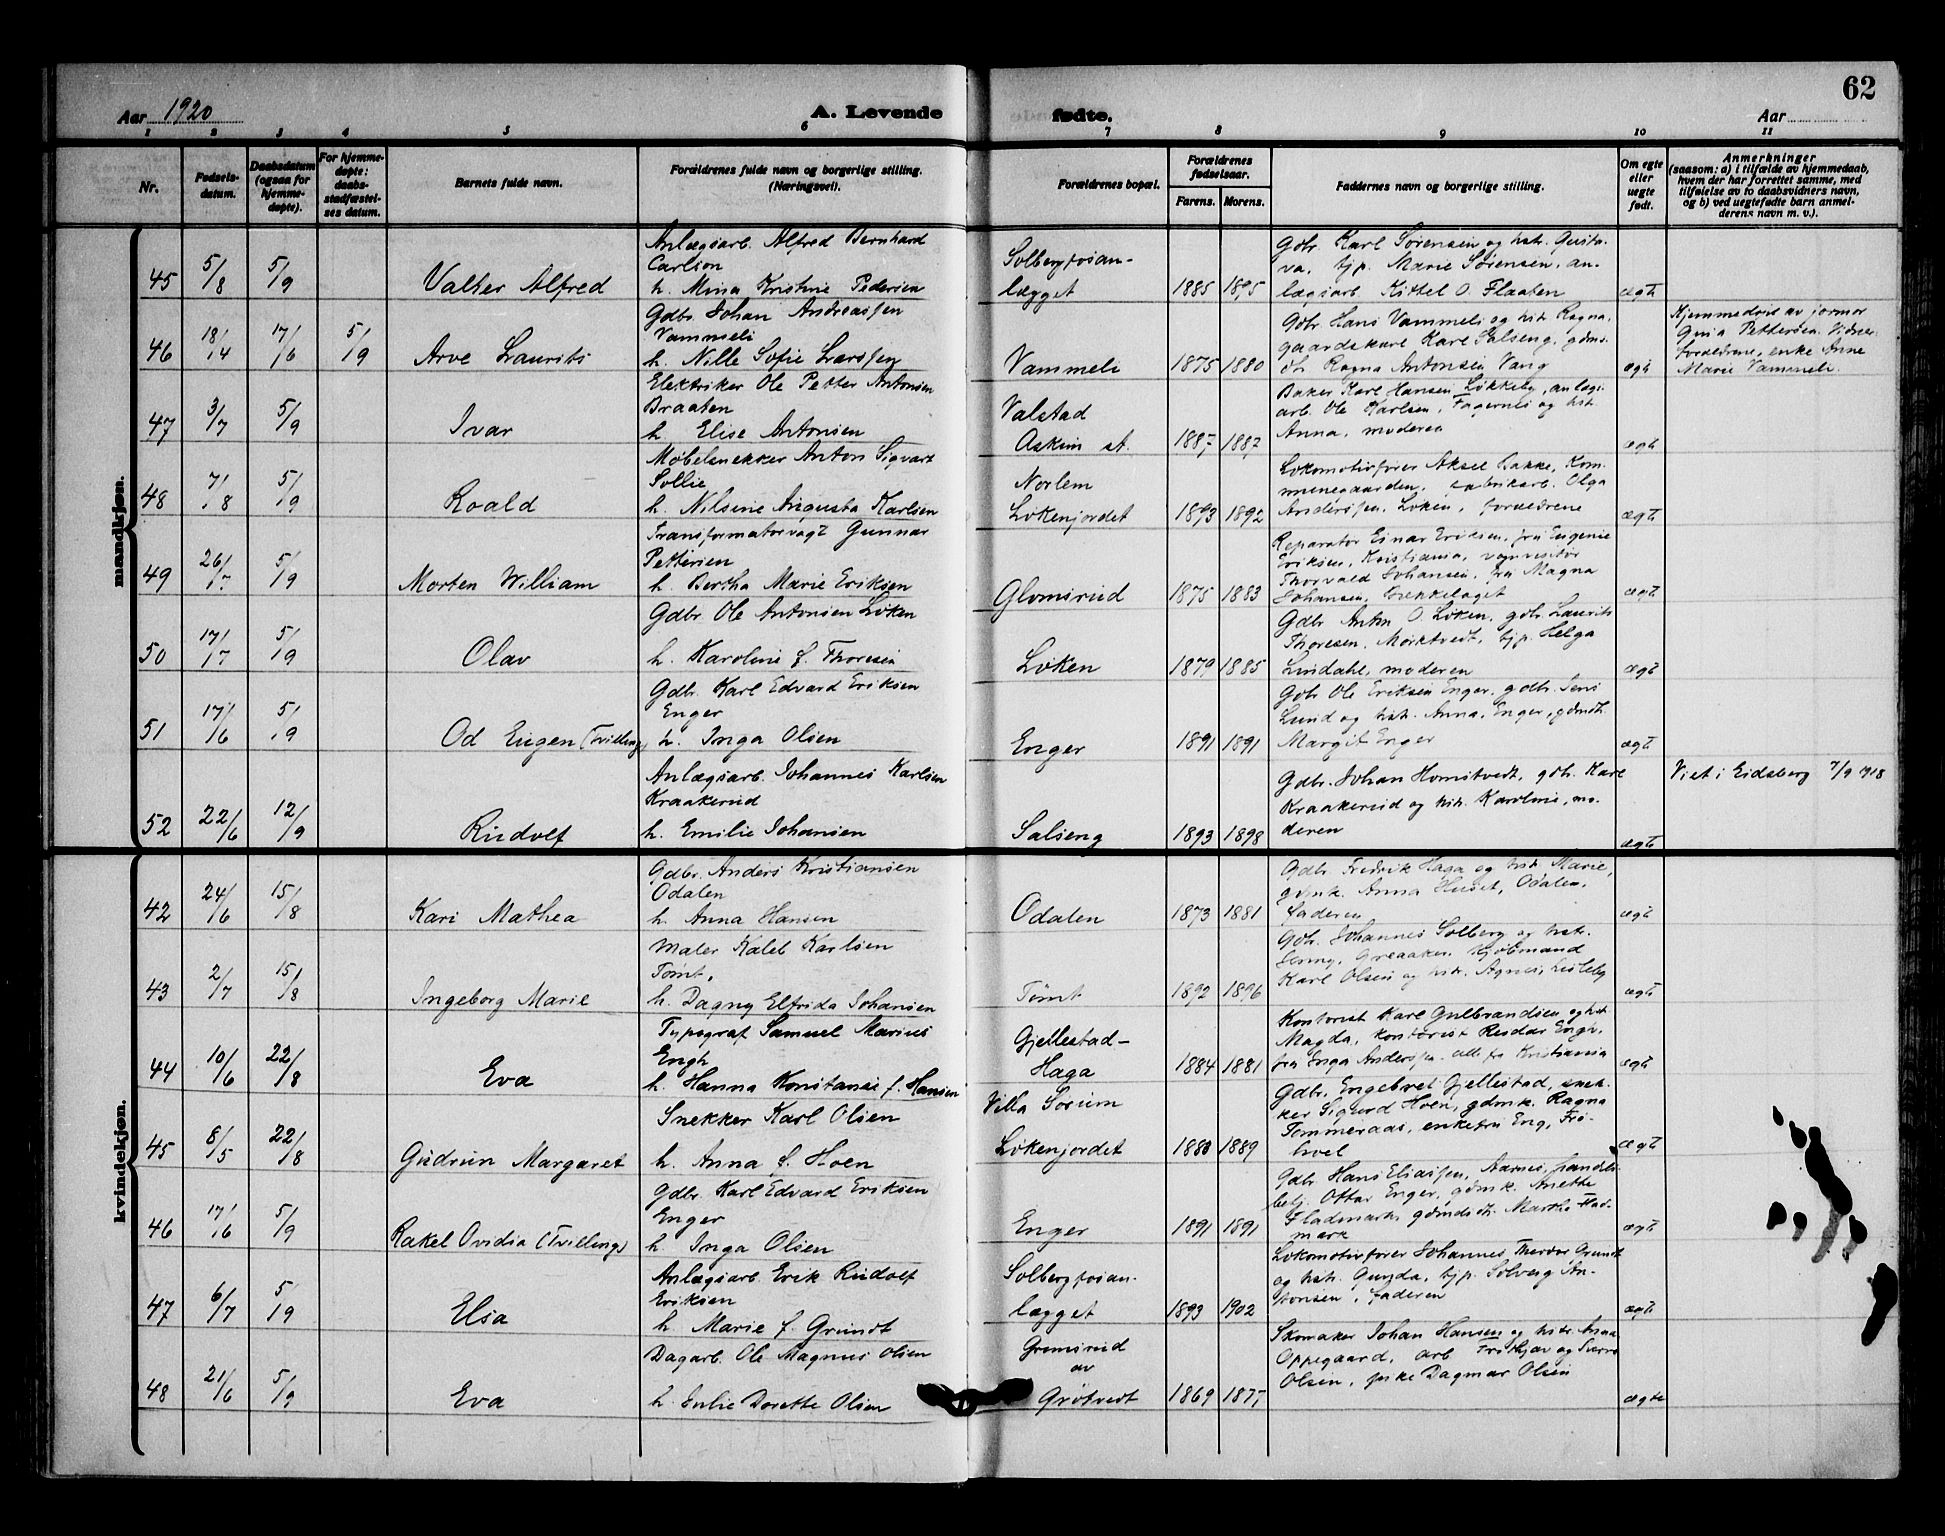 62
Aar 1920
A. Levende
fødte.
Aar
1 2 3 4 5 6 7 8 9 10 11
Nr.
Fødsels-
datum.
Daabsdatum
(ogsaa for
hjemme-
døpte).
For hjemme-
døpte:
daabs-
stadfæstel-
ses datum.
Barnets fulde navn.
Forældrenes fulde navn og borgerlige stilling.
(Næringsvei).
Forældrenes bopæl.
Forældrenes
fødselsaar.
Farens. Morens.
Faddernes navn og borgerlige stilling.
Om egte
eller
uegte
født.
Anmerkninger
(saasom: a) i tilfælde av hjemmedaab,
hvem der har forrettet samme, med
tilføielse av to daabsvidners navn,
og b) ved uegtefødte barn anmel-
derens navn m. v.).
mandkjøn.
45 5/8 5/9 Valter Alfred
Anlægsarb. Alfred Bernhard
Carlson
h. Mina Kristine Pedersen
Solbergfosan-
lægget
1885 1895
Gdbr. Karl Sørensen og hstr. Gusta-
va, tjp. Marie Sørensen, an-
lægsarb. Kittel O. Flaaten
ægte
46 18/4 17/6 5/9 Arve Laurits
Gdbr. Johan Andreassen
Vammeli
h. Nille Sofie Larssen
Vammeli
1875 1880
Gdbr. Hans Vammeli og hstr. Ragna,
gaardskarl Karl Salseng, gdms.
dtr. Ragna Antonsen Vang
ægte
Hjemmedøpt av jormor
Gina Pettersen. Vidner:
forældrene, enke Anne
Marie Vammeli.
47 3/7 5/9 Ivar
Elektriker Ole Petter Antonsen
Braaten
h. Elise Antonsen
Valstad
Askim st.
1887 1887
Baker Karl Hansen Løkkeby, anlægs-
arb. Ole Karlsen, Fagernes og hstr.
Anna, moderen
ægte
48 7/8 5/9 Roald
Møbelsnekker Anton Sigvart
Sollie
h. Nilsine Augusta Karlsen
Norlem
Løkenjordet
1893 1892
Lokomotivfører Aksel Bakke, Kom-
munegaarden, fabrikarb. Olga
Anderssen, Løken, forældrene
ægte
49 26/7 5/9 Morten William
Transformatorvagt Gunnar
Pettersen
h. Bertha Marie Eriksen
Glomsrud
1875 1883
Reparatør Einar Eriksen, fru Eugenie
Eriksen, Kristiania, vognvisitør
Thorvald Johansen, fru Magna
Johansen, Grækkelaget
ægte
50 17/7 5/9 Olav
Gdbr. Ole Antonsen Løken
h. Karoline f. Thoresen
Løken
1879 1885
Gdbr. Anton O. Løken, gdbr. Laurits
Thoresen, Mørktvedt, tjp. Helga
Lindahl, moderen
ægte
51 17/6 5/9 Od Eugen (Tvilling)
Gdbr. Karl Edvard Eriksen
Enger
h. Inga Olsen
Enger
1891 1891
Gdbr. Ole Eriksen Enger, gdbr. Jens
Lund og hstr. Anna, Enger, gdmdtr.
Margit Enger
ægte
52 22/6 12/9 Rudolf
Anlægsarb. Johannes Karlsen
Kraakerud
h. Emilie Johansen
Salseng
1893 1898
Gdbr. Johan Homstvedt, gdbr. Karl
Kraakerud og hstr. Karoline, mo-
deren
ægte
Viet i Eidsberg 7/9 1918
kvindekjøn.
42 24/6 15/8 Kari Mathea
Gdbr. Anders Kristiansen
Odalen
h. Anna Hansen
Odalen
1873 1881
Gdbr. Fredrik Haga og hstr. Marie,
gdmk. Anna Huset, Odalen,
faderen
ægte
43 2/7 15/8 Ingeborg Marie
Maler Kaleb Karlsen
Tømt,
h. Dagny Elfrida Johansen
Tømt
1892 1896
Gdbr. Johannes Solberg og hstr.
Jenny, Greaaker, kjøbmand
Karl Olsen og hstr. Agnes,
ægte
44 10/6 22/8 Eva
Typograf Samuel Marius
Engh
h. Hanna Konstanse f. Hansen
Gjellestad-
Haga
1884 1881
Kontorist Karl Gulbrandsen og hstr.
Magda, kontorist Reidar Engh,
fru Inga Anderssen, alle fra Kristiania
ægte
45 8/5 22/8 Gudrun Margaret
Snekker Karl Olsen
h. Anna f. Hoen
Villa Sorum
Løkenjordet
1880 1889
Gdbr. Engebret Gjellestad, snek-
ker Sigurd Hoen, gdmk. Ragna
Tommeraas, enkefru Eng, Trø-
ægte
46 17/6 5/9 Rakel Ovidia (Tvilling)
Gdbr. Karl Edvard Eriksen
Enger
h. Inga Olsen
Enger
1891 1891
Gdbr. Hans Eliassen, Aarnes, handels-
betj. Ottar Enger, gdmk. Anette
Fladmark, gdmdtr. Martha Flad-
mark
ægte
47 6/7 5/9 Elsa
Anlægsarb. Erik Rudolf
Eriksen
h. Marie f. Grundt
Solbergfosan-
lægget
1899 1902
Lokomotivfører Johannes Theodor Grundt
og hstr. Gunda, tjp. Solveig An-
tonsen, faderen
ægte
48 21/6 5/9 Eva
Dagarb. Ole Magnus Olsen
h. Julie Dorette Olsen
Gremsrud
av
Grøtvedt
1869 1877
Skomaker Johan Hansen og hstr. Anna
Oppegaard, arb. Fritkjov og Sverre
Olsen, pike Dagmar Olsen
ægte